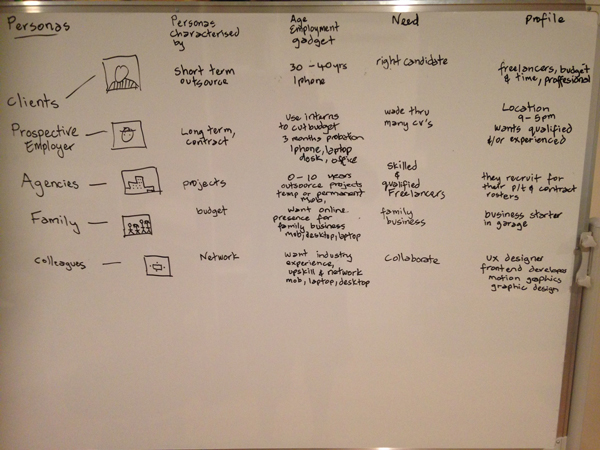 Personas
Personas characterised by
Age Employment gadget
Need
Profile
Clients
short term outsource
30-40yrs
Iphone
right candidate
freelancers, budget & time, proffesional
Prospective Employer
Long term, contract
Use interns to cut budget
3 months probation
Iphone, laptop
desk, office
wade thru many cv's
Location
9-5pm
wants qualified &/or experienced
Agencies
projects
0-10 years
outsource projects
temp or permanant
mob,
skilled & qualified Freelancers
they recruit for their p/t & contract rosters
Family
budget
want online presence for family business
mob, desktop, laptop
family business
business starter in garage
colleagues
Network
want industry experience, upskill & network
mob, laptop, desktop
Collaborate
ux designer
frontend developer
motion graphics
graphic design